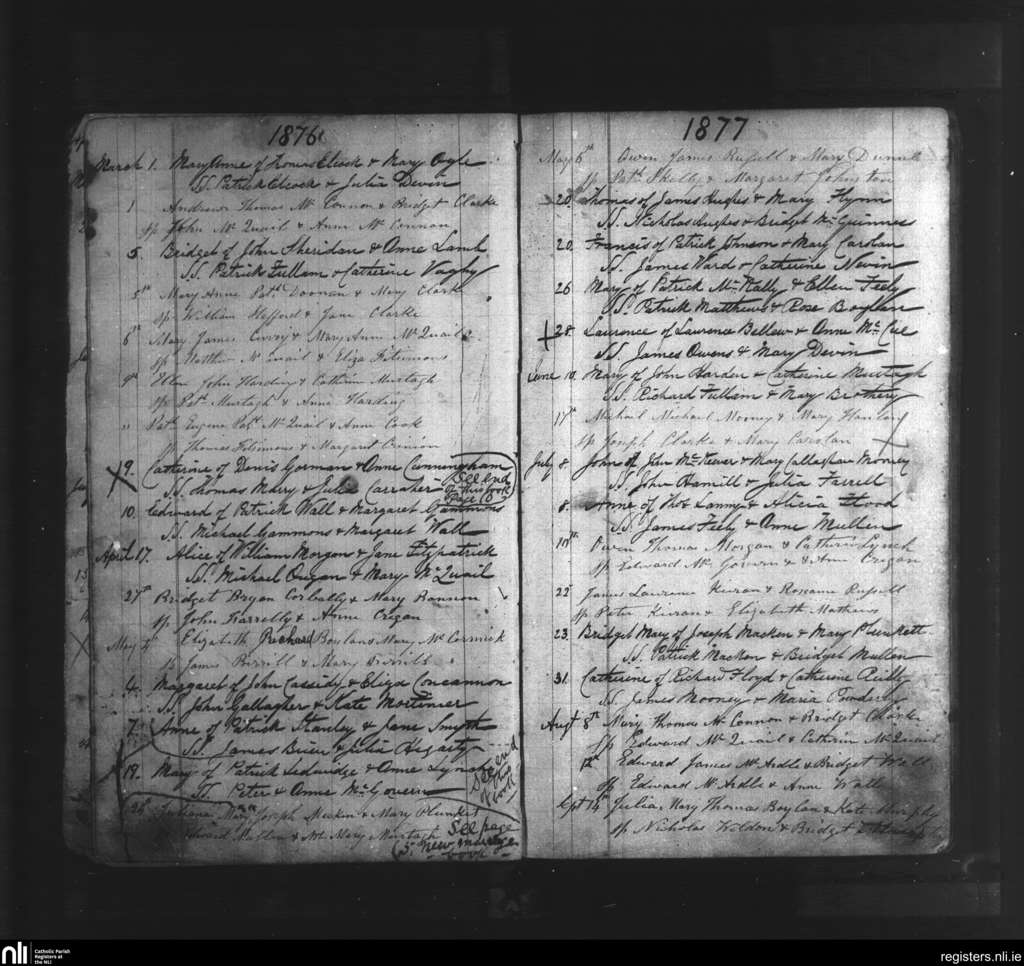 1876
March 1. Mary Anne of Thomas Elcock & Mary Coyle
SS. Patrick Elcock & Julia Devin
1 Andrew Thomas Mc Connon & Bridget Clarke
Sp John Mc Quail & Anne Mc Connon
5. Bridget of John Sheridan & Anne Lamb
SS. Patrick Fullam & Catherine
5th Mary Anne Patk Doonan & Mary Clark
Sp William & Jane Clarke
6th Mary James & Mary Anne Mc Quail
Sp Matthew Mc Quail & Eliza Fitsimons
9th Ellen John Harding & Cathrin Murtagh
Sp Patk Murtagh & Anne Harding
" Patk Eugene Patk Mc Quail & Anne Cook
Sp Thomas Fitsimons & Margaret
X 9. Catherine of Denis Gorman & Anne Cunningham
SS. Thomas Mary & Julia Carraher
See end
of this book
page 10
10. Edward of Patrick Wall & Margaret Gammons
SS. Michael Gammons & Margaret Wall
April 17. Alice of William Morgan & Jane Fitzpatrick
SS. Michael & Mary Mc Quail
27th Bridget Bryan Corbally & Mary Bannon
Sp John Farrelly & Anne Cregan
May Elizabeth Richard Boylan & Mary Mc Cormick
Sp James Birrill & Mary Birrill
4. Margaret of John Cassidy & Eliza Concannon
SS. John Gallagher & Kate Mortimer
7. Anne of Patrick Stanley & Jane Smyth
SS. James & Julia Hegarty
19. Mary of Patrick & Anne Lynch
SS. Peter & Anne Mc Govern
See end
of this
book
28 Mary Joseph Macken & Mary Plunket
Edward Mullen & Mary Murtagh
See page
5 new marrge
book
1877
May 6th Owen James Russell & Mary
Sp Patk Skelly & Margaret Johnston
20. Thomas of James Hughes & Mary Flynn
SS. Nicholas Hughes & Bridget Mc Guinness
20. Francis of Patrick Johnson & Mary Carolan
SS. James Ward & Catherine Nevin
26 Mary of Patrick Mc Nally & Ellen Feely
SS. Patrick Matthews & Rose Boylan
28. Laurence of Laurence Bellew & Anne Mc Cue
SS. James Owens & Mary Devin
June 10. Mary of John Harden & Catherine Murtagh
SS. Richard Fullam & Mary Brothery
17th Michael Michael Mooney & Mary Hanlon
Sp Joseph Clarke & Mary Carolan
July 8. John of John & Mary Callaghan Mooney
SS. John Hamill & Julia Farrell
8. Anne of Thos Lanny & Alicia Flood
SS. James Feely & Anne Mullen
Owen Thomas Morgan & Cathrin Lynch
Sp Edward Mc Govern & Anne Cregan
22 James Laurence Kieran & Roseanne Russell
Sp Peter Kieran & Elizabeth Mathews
23. Bridget Mary of Joseph Macken & Mary Plunkett
SS. Patrick Macken & Bridget Mullen
31. Catherine of Richard Floyd & Catherine Reilly
SS. James Mooney & Maria
Augt 8th Mary Thomas Mc Connon & Bridget Clarke
Sp Edward Mc Quail & Cathrin Mc Quail
12th Edward James Mc Ardle & Bridget Wall
Sp Edward Mc Ardle & Anne Wall
Sept 14th Julia Mary Thomas Boylan & Kate Murphy
Sp Nicholas Weldon & Bridget
nli
Catholic Parish
Registers at
the NLI
registers.nli.ie